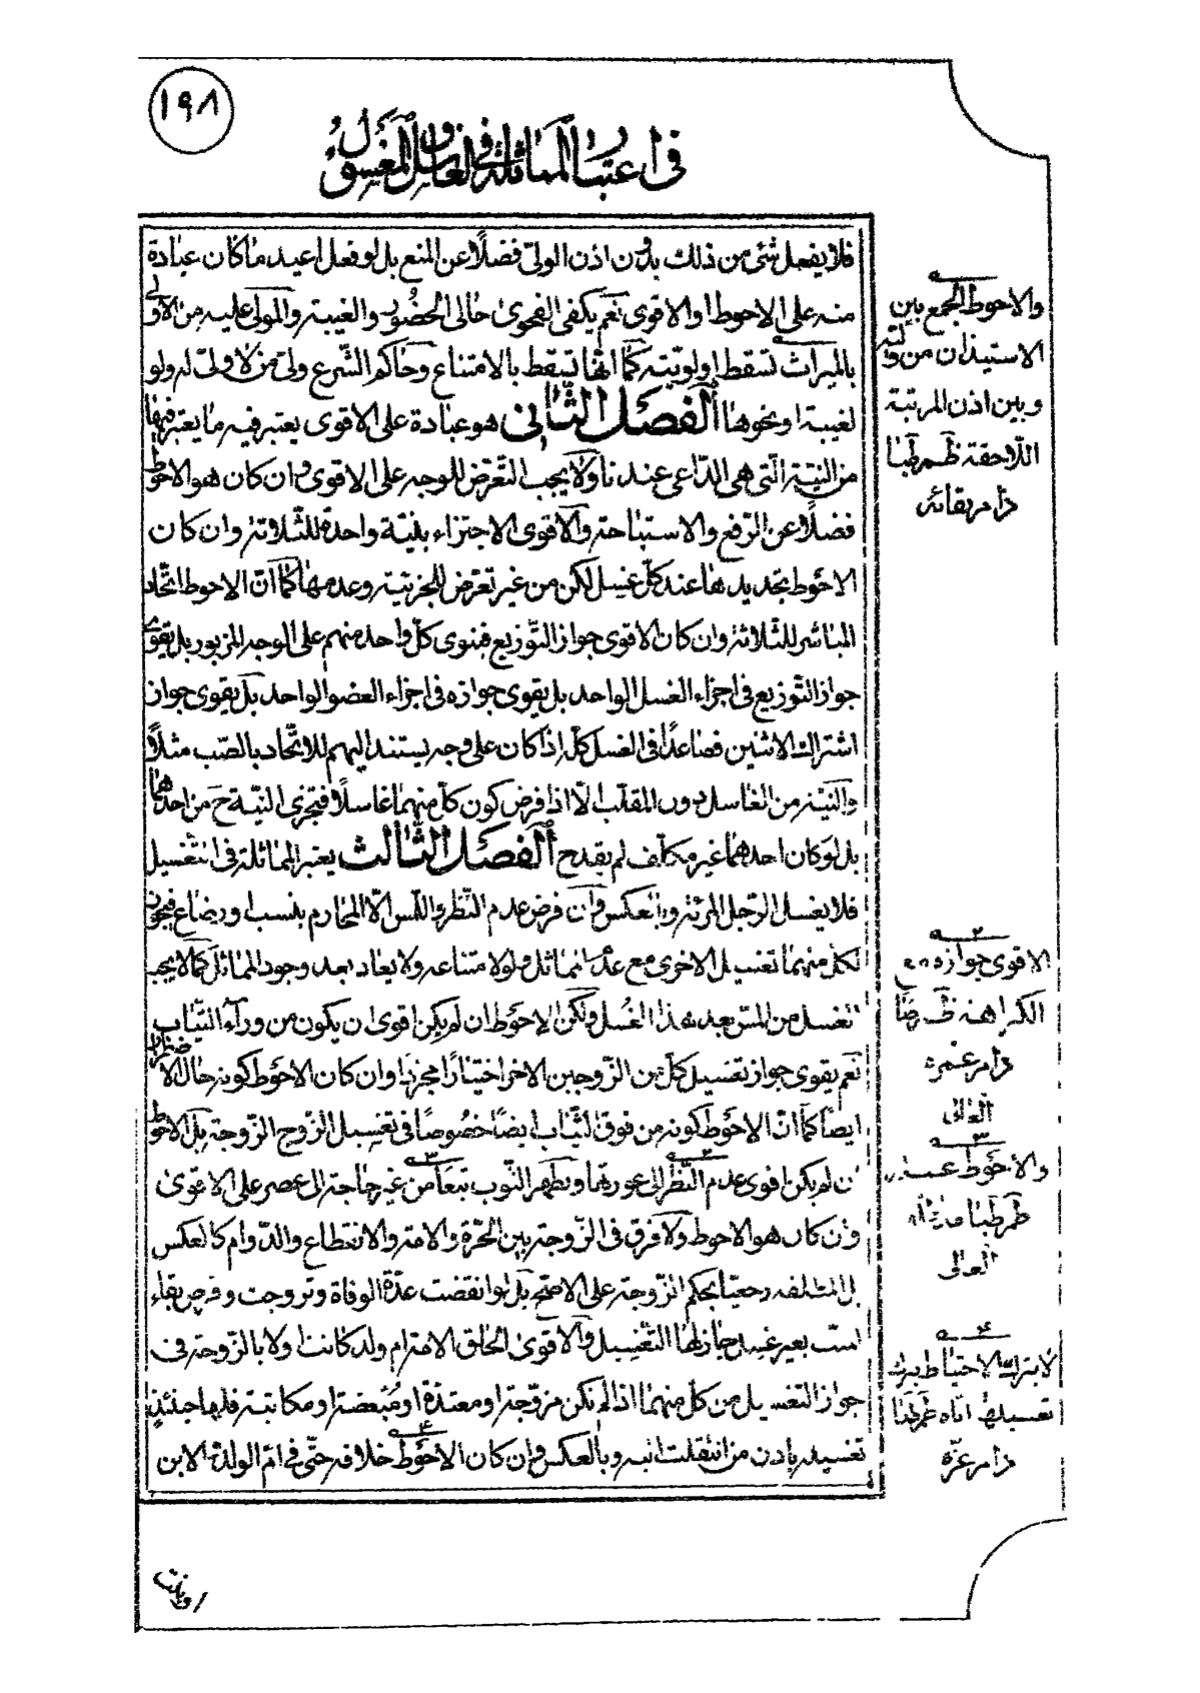 ١٩٨
في اعتبار المماثلة في الغاسل والمغسول
فلا يفعل شئ من ذلك بدون اذن الولى فضلًا عن المنع بل لو فعل اعيد ما كان عبادة
منه على الاحوط او الاقوى نعم يكفى الفحوى حالى الحضور والغيبة والمولى عليه من الاولى
بالميراث تسقط اولويته كما انها تسقط بالامتناع وحاكم الشرع ولى من لا ولىّ له ولو
لغيبة او نحوها الفصل الثانى هو عبادة على الاقوى يعتبر فيه ما يعتبر فيها
من النيّة الّتى هى الدّاعى عندنا ولا يجب التّعرّض للوجه على الاقوى وان كان هو الاحوط
فضلًا عن الرّفع والاستباحة والاقوى الاجتزاء بنيّة واحدة للثّلاثة وان كان
الاحوط تجديدها عند كلّ غسل لكن من غير تعرّض للجزئية وعدمها كما انّ الاحوط اتّحاد
المباشر للثّلاثة وان كان الاقوى جواز التّوزيع فينوى كلّ واحد منهم على الوجه المزبور بل يقوى
جواز التّوزيع فى اجزاء الغسل الواحد بل يقوى جوازه فى اجزاء العضو الواحد بل يقوى جواز
اشتراك الاثنين فصاعدًا فى الغسل كلّه اذا كان على وجه يستند اليهم للاتّحاد بالصّب مثلًا
والنيّة من الغاسل دون المقلّب الّا اذا فرض كون كلّ منهما غاسلًا فتجزى النيّة ح من احدهما
بل لو كان احدهما غير مكلّف لم يقدح الفصل الثّالث يعتبر المماثلة فى التغسيل
فلا يغسل الرّجل المرئة وبالعكس وان فرض عدم النّظر واللّمس الّا المحارم بنسب او رضاع فيجوز
لكلّ منهما تغسيل الاخرى مع عدم المماثل ولو لامتناعه ولا يعاد بعد وجود المماثل كما لا يجب
الغسل من المسّ بعد هذا الغسل ولكن الاحوط ان لم يكن اقوى ان يكون من ورآء الثّياب
نعم يقوى جواز تغسيل كلّ من الزّوجين الاخر اختيارًا مجردًا وان كان الاحوط كونه حال الاضطرار
ايضًا كما انّ الاحوط كونه من فوق الثّياب ايضًا خصوصًا فى تغسيل الزّوج الزّوجة بل الاحوط
ان لم يكن اقوى عدم النّظر الى عورتها ويطهر الثّوب تبعًا من غير حاجة الى عصر على الاقوى
وان كان هو الاحوط ولا فرق فى الزّوجة بين الحرّة والامة والانقطاع والدّوام كالعكس
بل المطلقه رجعيّا بحكم الزّوجة على الاصحّ بل لو انقضت عدّة الوفاة وتزوجت وفرض بقاء
الميت بغير غسل جاز لها التغسيل والاقوى الحاق الامة ام ولد كانت اولا بالزّوجة فى
جواز التغسيل من كلّ منهما اذا لم تكن مزوّجة او معتدّة او مبعّضة او مكاتبة فلها حينئذٍ
تغسيله باذن من انتقلت اليه وبالعكس وان كان الاحوط خلافه حتّى فى امّ الولد لا بن
والاحوط الجمع بين
الاستيذان من وليّه
وبين اذن المرتبة
اللّاحقة ظم طبا
دام بقائه
٢
الاقوى جوازه مع
الكراهة
دام عمره
العالى
٣
والاحوط عدم
العالى
۴
لا يترك الاحتياط بترك
تغسيلها ايّاه
دام عزّه